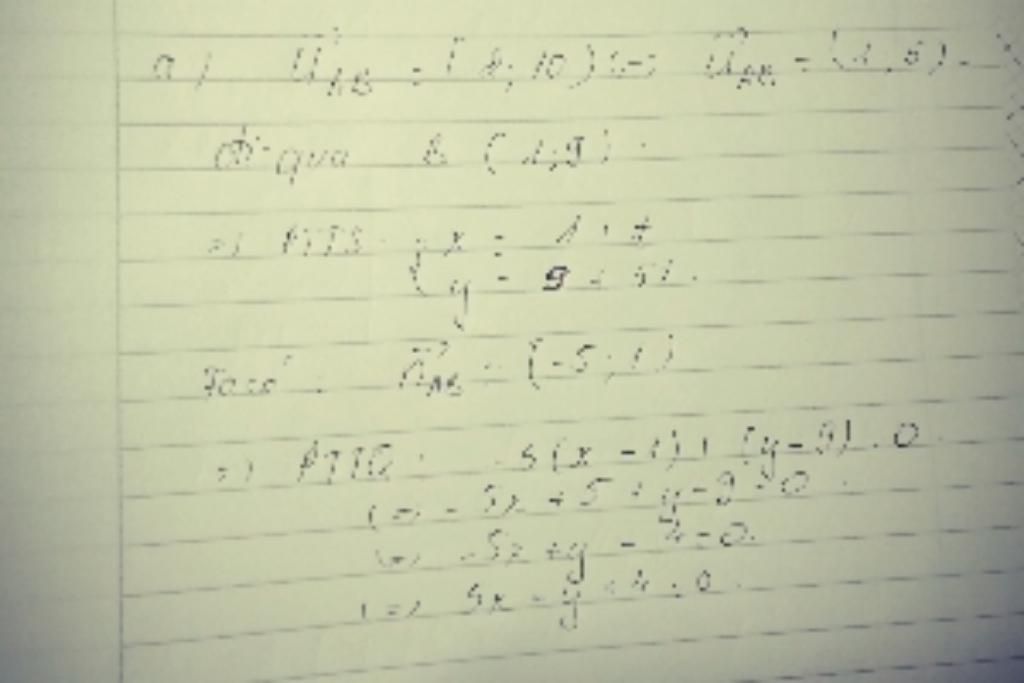 a) u⃗AB = (2; 10) <=> u⃗AB = (1; 5).
đi qua B (1; 9).
=> PTTS: { x = 1 + t
y = 9 + 5t.
Ta có: n⃗AB = (-5; 1)
=> PTTQ: -5(x - 1) + (y - 9) = 0
<=> -5x + 5 + y - 9 = 0.
<=> -5x + y - 4 = 0.
<=> 5x - y + 4 = 0.